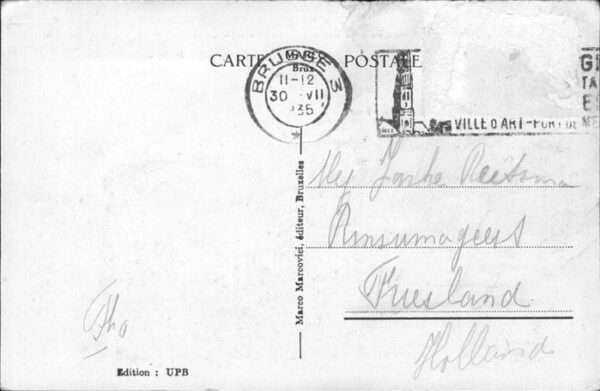 CARTE POSTALE
BRUGGE 3
11-12
30 VII
35
GE
VILLE D'ART-PORT DE
Marco Marcovici, éditeur, Bruxelles
Mej. Reitsma
Rinsumageest
Friesland
Holland
Edition : UPB